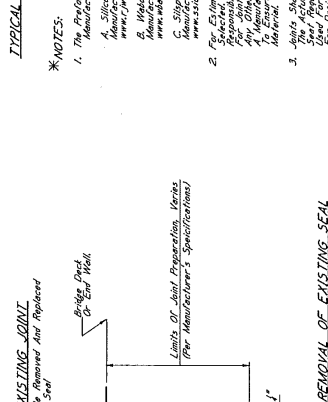 XISTING JOINT
e Removed And Replaced
Seal
Bridge Deck
Or End Wall.
Limits Of Joint Preparation, Varies
(Per Manufacturer's Speicifications)
REMOVAL OF EXISTING SEAL
TYPICAL
*NOTES:
1. The Prefo
Manufac
A. Silico
Manufac
www.rjw
B. Wabo
Manufac
www.wba
C. Silsp
Manufac
www.ssi
2. For Estim
Selected,
Responsib
For Joint
Any Othe
A Manufa
To Ensure
Material.
3. Joints Sh
The Actua
Seal Repl
Used For